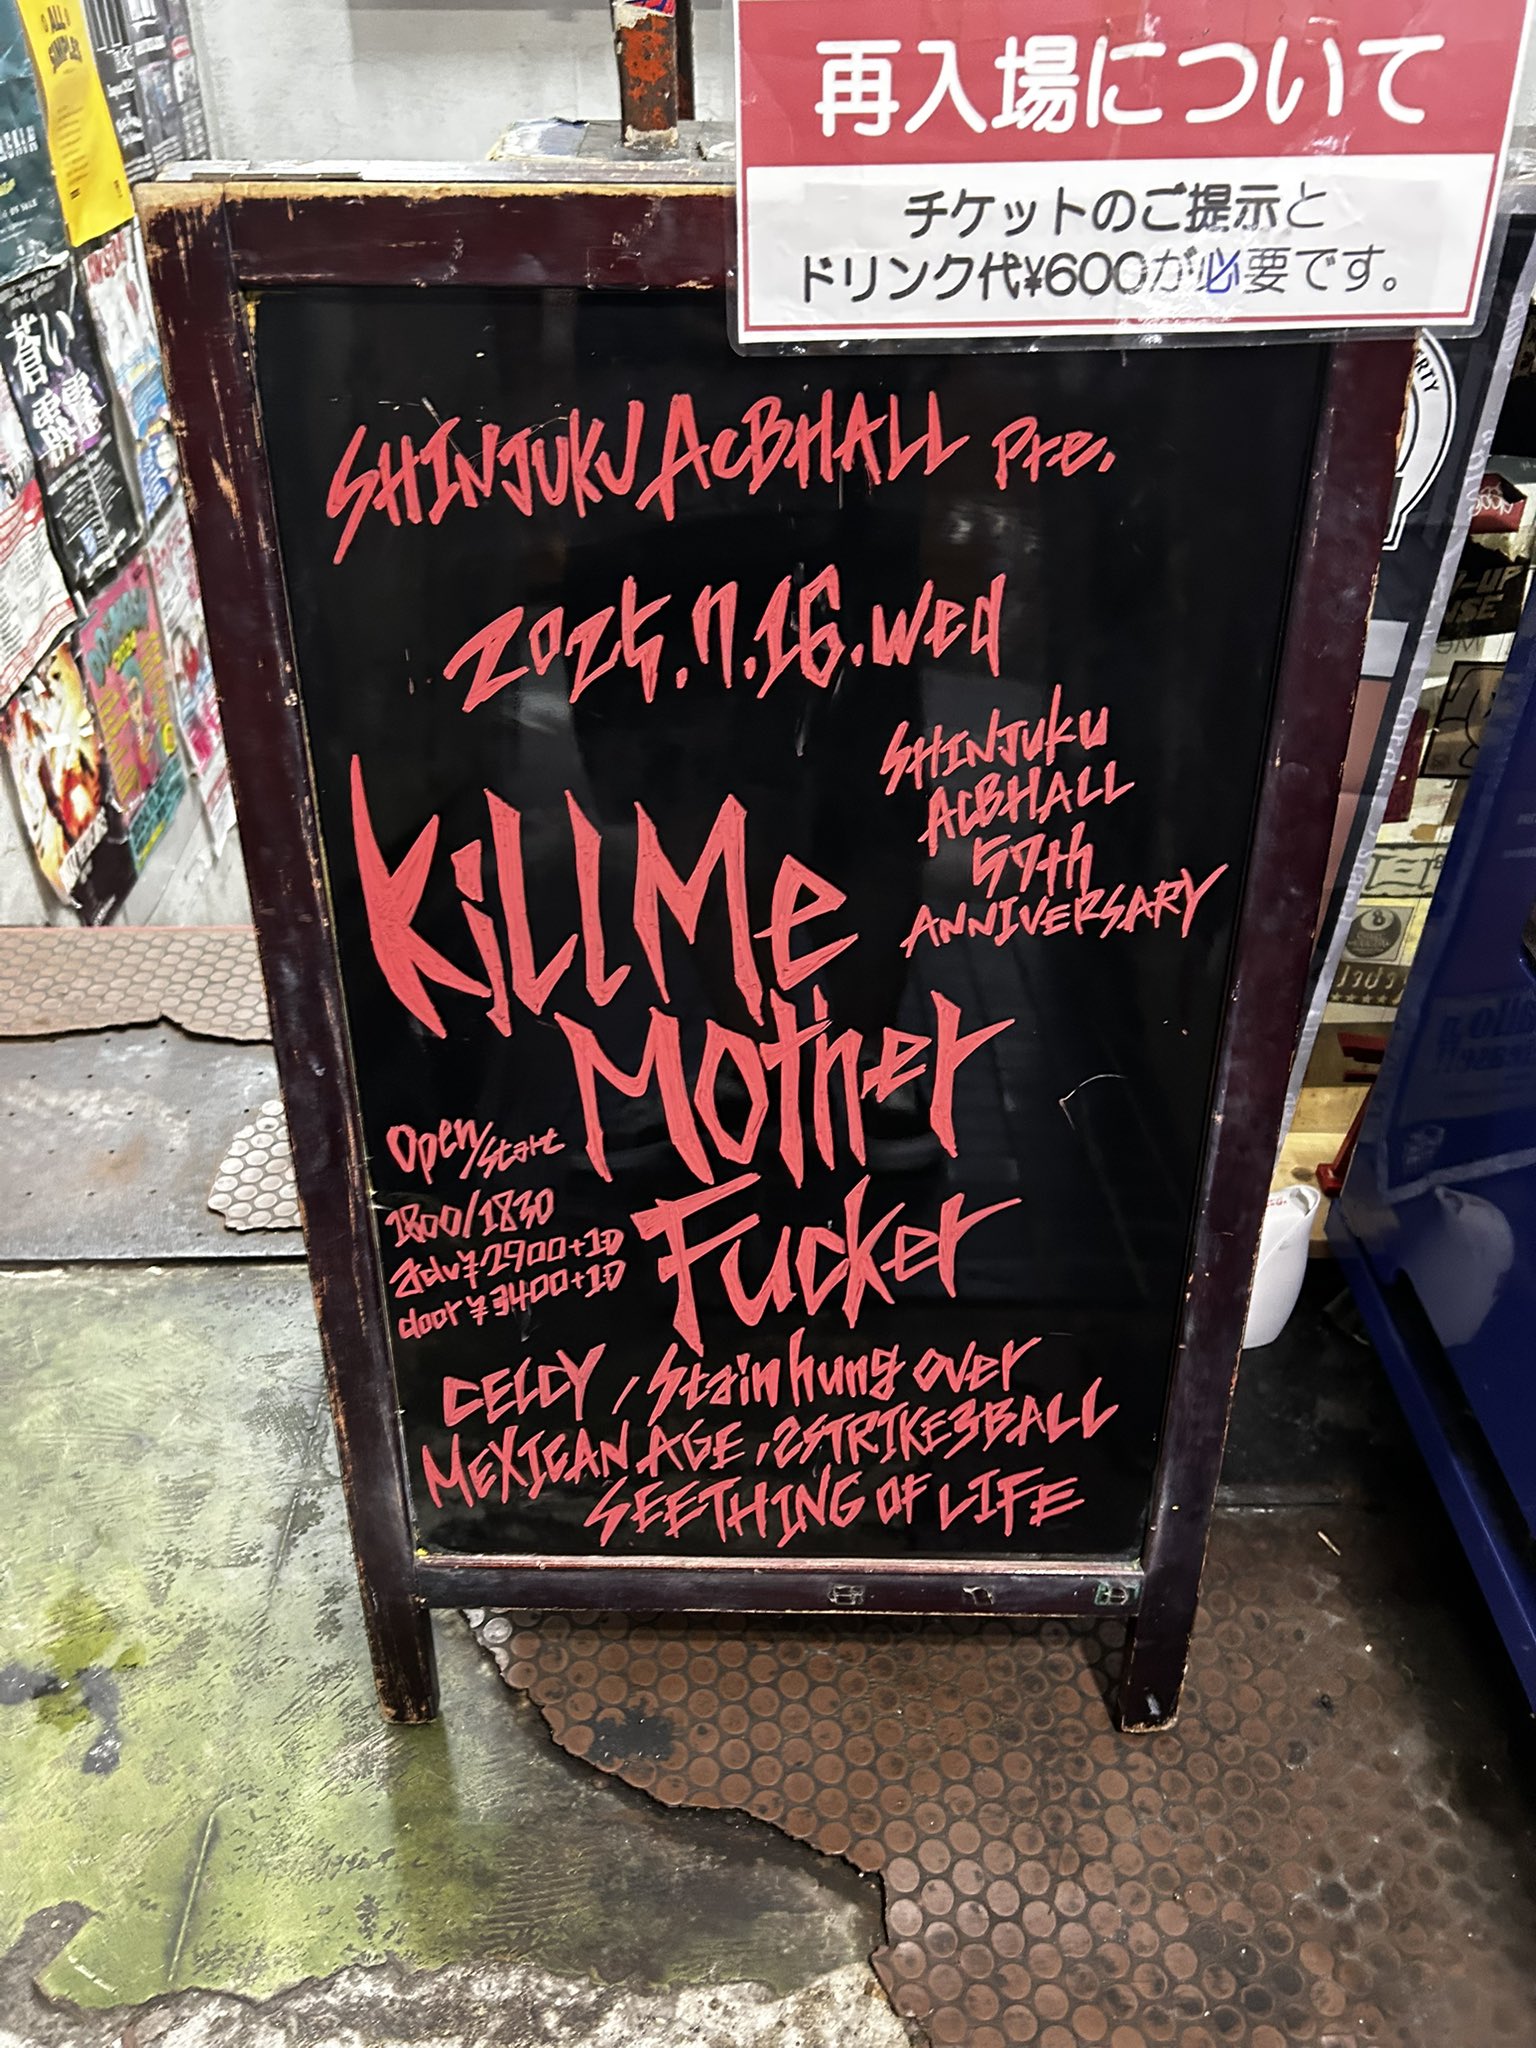 再入場について
チケットのご提示と
ドリンク代¥600が必要です。
SHINJUKU ACBHALL Pre.
2025.7.16.wed
SHINJUKU
ACBHALL
57th
ANNIVERSARY
KiLLMe
Mother
Fucker
Open/Start
1800/1830
adv¥2900+1D
door¥3400+1D
CELCY, Stain hung over
MEXICAN AGE, 2STRIKE3BALL
SEETHING OF LIFE
ALL
蒼い